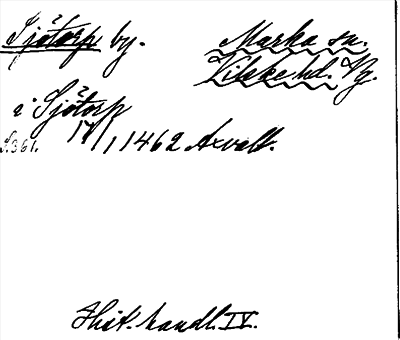 Sjötorp by. Marka sn.
Vilske hd. Vg.
i Sjötorp
S.361. 17/1 1462 Axvall.
Hist. handl. IV.